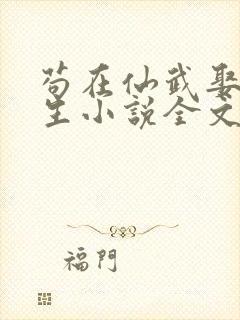 苟在仙武娶
生小說全文
福門